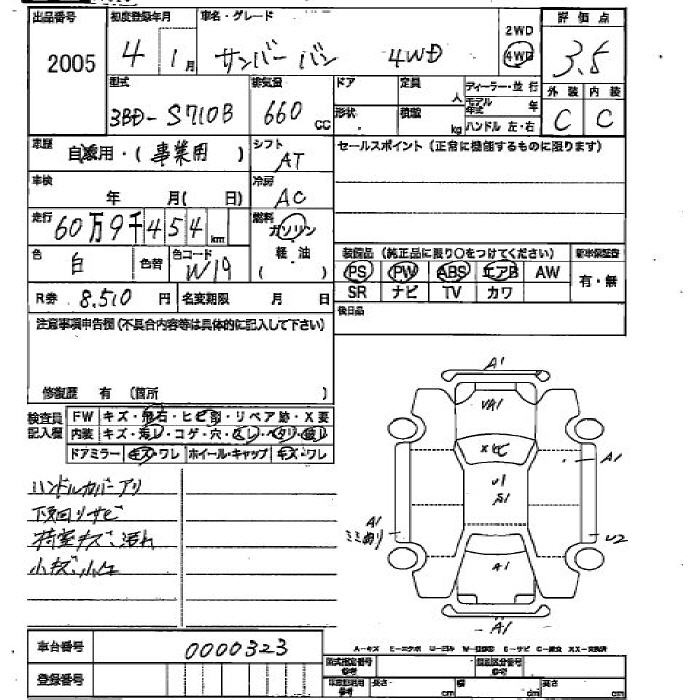 出品番号 初度登録年月 車名・グレード 2WD 評価点
2005 4 1月 サンバー バン 4WD 4WD 3.5
型式 排気量 ドア 定員 人 ディーラー・並行 外装 内装
3BD-S710B 660 CC 形状 積載 kg モデル年式 年 ハンドル 左・右 C C
車歴 自家用・(事業用) シフト AT セールスポイント(正常に機能するものに限ります)
車検 年 月(日) 冷房 AC
走行 60万9千454km 燃料 ガソリン
色 白 色替 色コード W19 軽油 ( ) 装備品(純正品に限り○をつけてください) 新車保証書
PS PW ABS エアB AW 有・無
R券 8.510円 名変期限 月 日 SR ナビ TV カワ
注意事項申告欄(不具合内容等は具体的に記入して下さい) 後日品
修復歴 有(箇所 )
検査員記入欄 FW キズ・飛石・ヒビ割・リペア跡・X要
内装 キズ・汚レ・コゲ・穴・スレ・ヘタリ・破レ
ドアミラー キズ・ワレ ホイール・キャップ キズ・ワレ
ハンドルカバーアリ
下回りサビ
荷室キズ、汚れ
小キズ、小凹
A1
VA1
Xヒビ
A1
U1
S1
A1
ミミ切り
U2
A1
A1
A-キズ E-エクボ U-ヒル W-補修跡 S-サビ C-腐食 XX-交換済
車台番号 0000323 型式指定番号 参考 類別区分番号 参考
登録番号 車庫証明用 参考 長さ cm 幅 cm 高さ cm